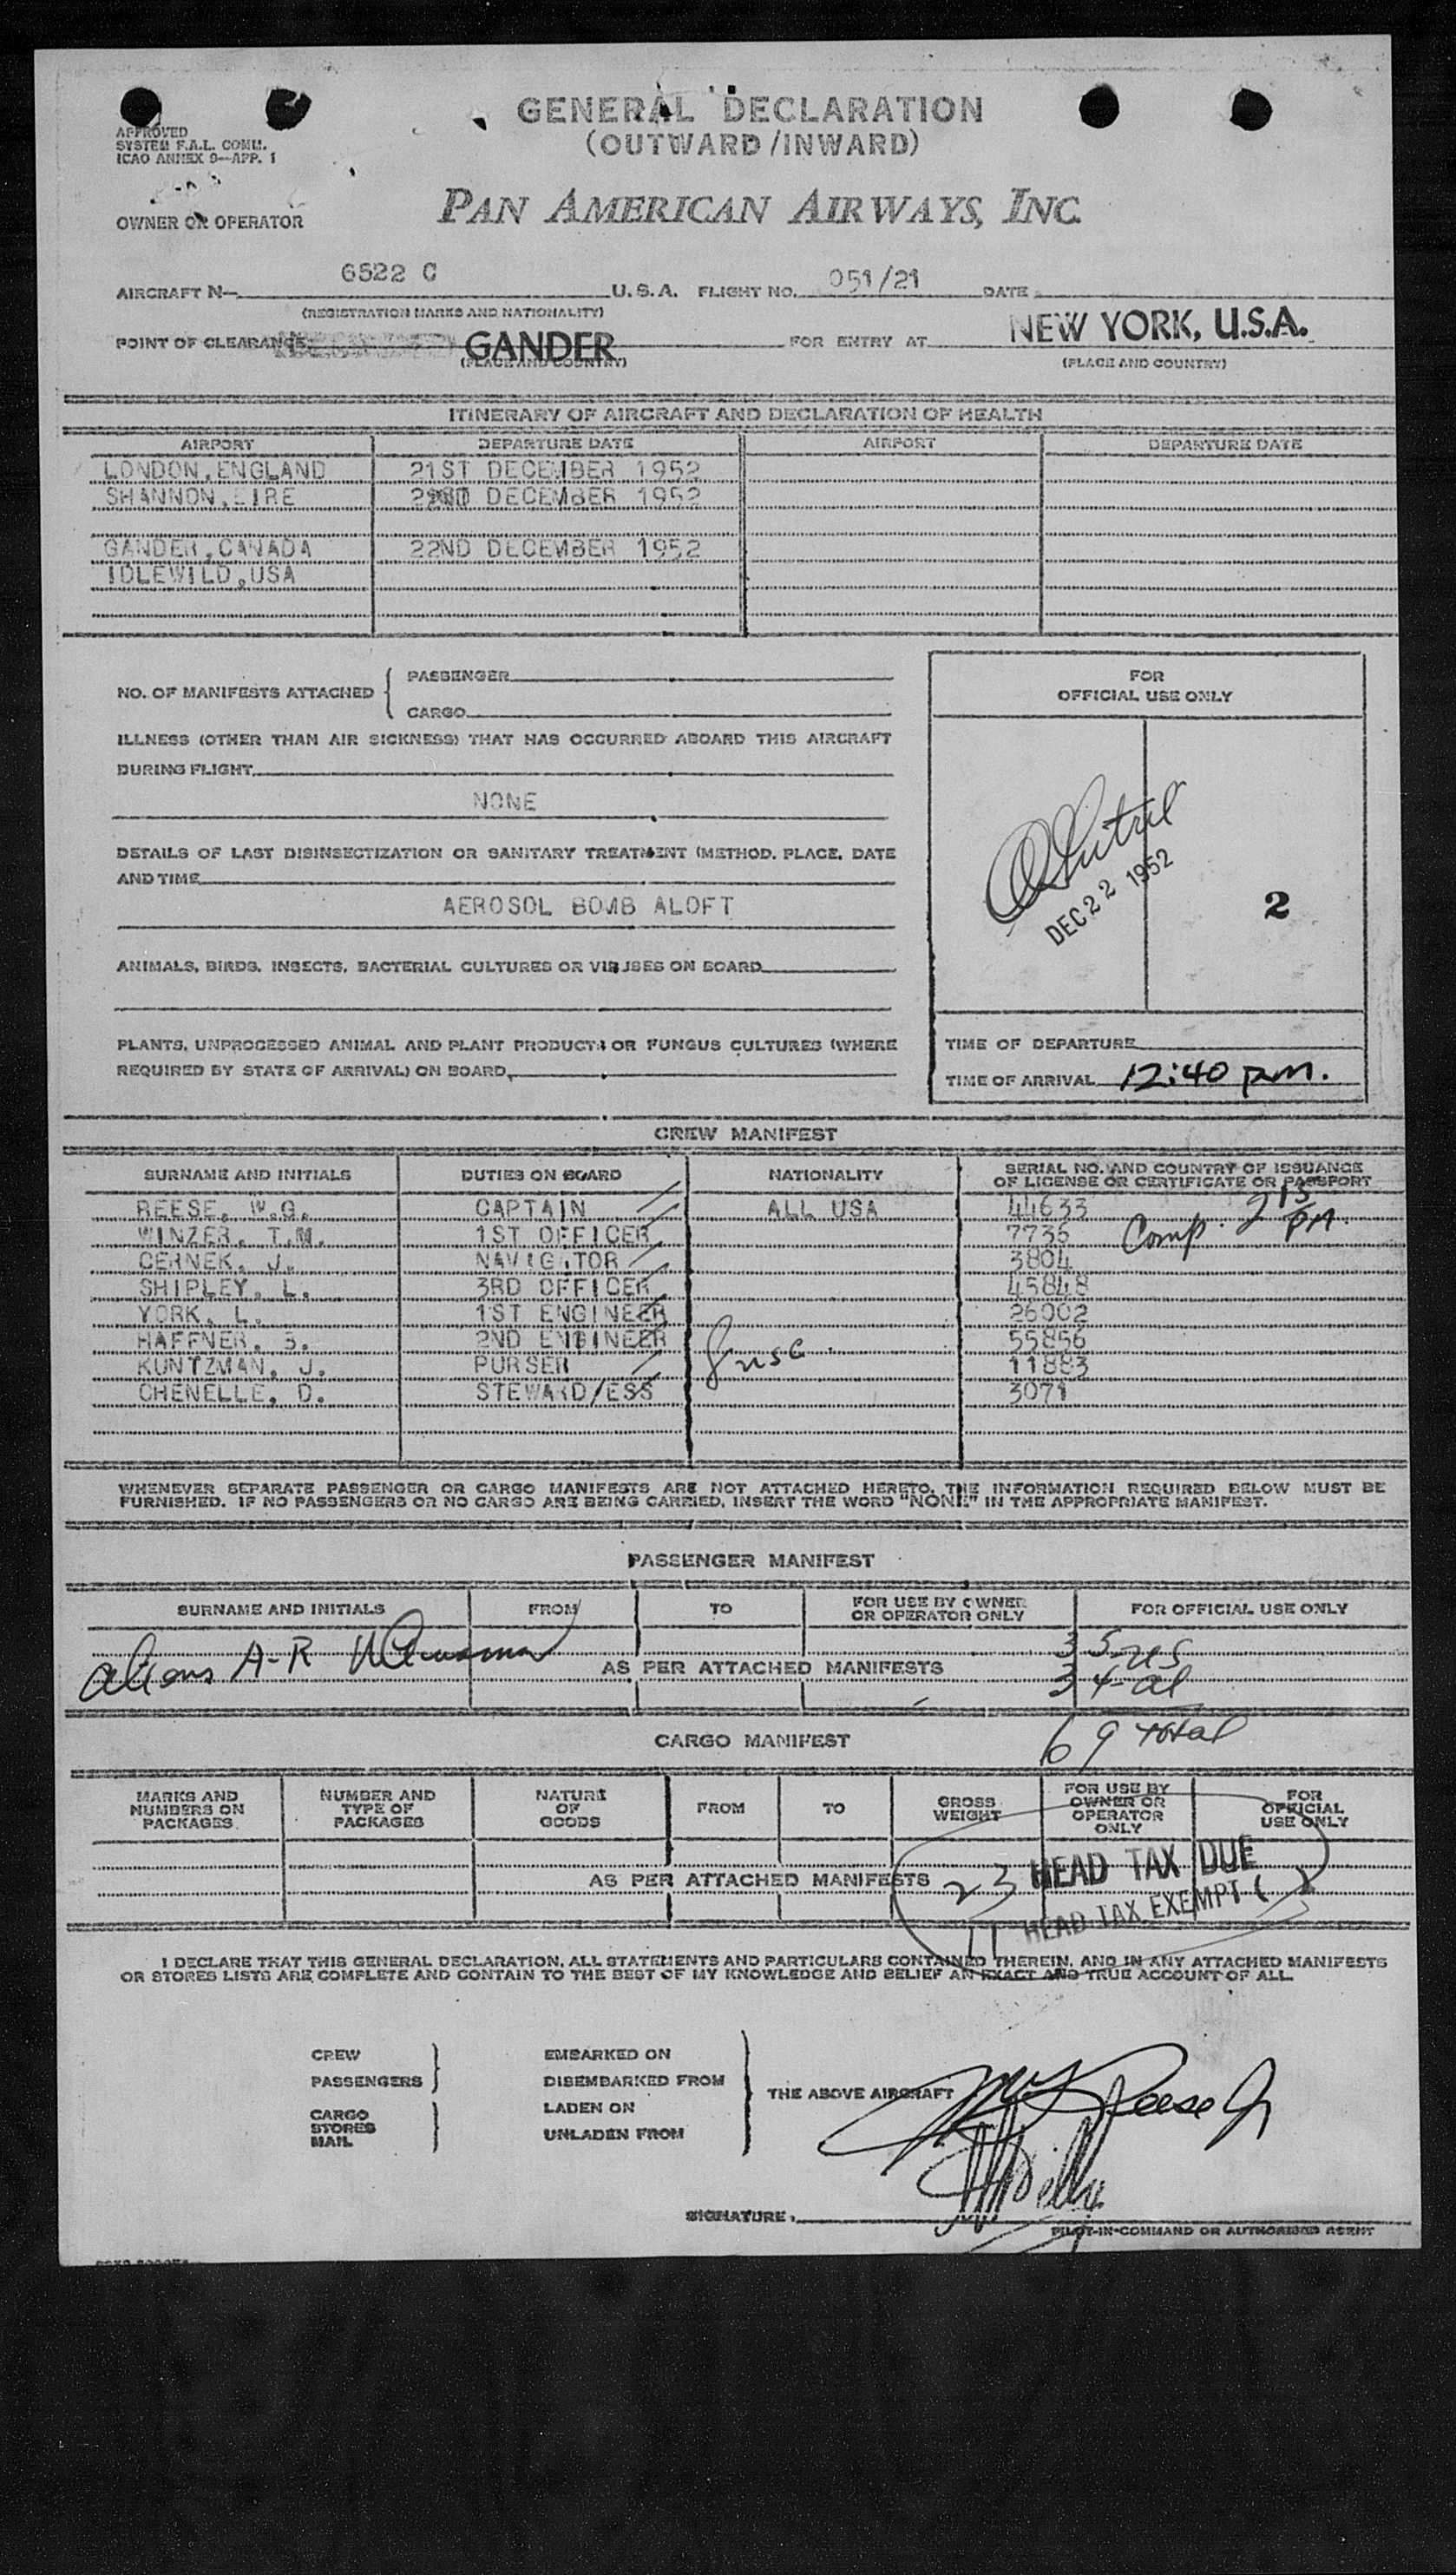 GENERAL DECLARATION
(OUTWARD/INWARD)
APPROVED
SYSTEM F.A.L. COMM.
ICAO ANNEX 9-APP. 1
OWNER OR OPERATOR
PAN AMERICAN AIRWAYS, INC.
AIRCRAFT N- 6522 C U.S.A. FLIGHT NO. 051/21 DATE
(REGISTRATION MARKS AND NATIONALITY)
POINT OF CLEARANCE GANDER FOR ENTRY AT NEW YORK, U.S.A.
(PLACE AND COUNTRY) (PLACE AND COUNTRY)
ITINERARY OF AIRCRAFT AND DECLARATION OF HEALTH
AIRPORT DEPARTURE DATE AIRPORT DEPARTURE DATE
LONDON,ENGLAND 21ST DECEMBER 1952
SHANNON,EIRE DECEMBER 1952
GANDER,CANADA 22ND DECEMBER 1952
IDLEWILD,USA
NO. OF MANIFESTS ATTACHED { PASSENGER
CARGO
ILLNESS (OTHER THAN AIR SICKNESS) THAT HAS OCCURRED ABOARD THIS AIRCRAFT
DURING FLIGHT
NONE
DETAILS OF LAST DISINSECTIZATION OR SANITARY TREATMENT (METHOD, PLACE, DATE
AND TIME
AEROSOL BOMB ALOFT
ANIMALS, BIRDS, INSECTS, BACTERIAL CULTURES OR VIRUSES ON BOARD
PLANTS, UNPROCESSED ANIMAL AND PLANT PRODUCTS OR FUNGUS CULTURES (WHERE
REQUIRED BY STATE OF ARRIVAL) ON BOARD
FOR
OFFICIAL USE ONLY
DEC 22 1952
2
TIME OF DEPARTURE
TIME OF ARRIVAL 12:40 p.m.
CREW MANIFEST
SURNAME AND INITIALS DUTIES ON BOARD NATIONALITY SERIAL NO. AND COUNTRY OF ISSUANCE
OF LICENSE OR CERTIFICATE OR PASSPORT
REESE, W.G. CAPTAIN ALL USA 44633
WINZER, T.M. 1ST OFFICER 7735 Comp. 2 15 PM
CERNEK, J. NAVIGATOR 3804
SHIPLEY, L. 3RD OFFICER 45848
YORK, L. 1ST ENGINEER 26002
HAFFNER, 2ND ENGINEER 55856
8 usc
KUNTZMAN, J. PURSER 11883
CHENELLE, D. STEWARD/ESS 3071
WHENEVER SEPARATE PASSENGER OR CARGO MANIFESTS ARE NOT ATTACHED HERETO, THE INFORMATION REQUIRED BELOW MUST BE
FURNISHED. IF NO PASSENGERS OR NO CARGO ARE BEING CARRIED, INSERT THE WORD "NONE" IN THE APPROPRIATE MANIFEST.
PASSENGER MANIFEST
SURNAME AND INITIALS FROM TO FOR USE BY OWNER
OR OPERATOR ONLY FOR OFFICIAL USE ONLY
35-
aliens A-R
AS PER ATTACHED MANIFESTS
34-al
69 total
CARGO MANIFEST
MARKS AND
NUMBERS ON
PACKAGES
NUMBER AND
TYPE OF
PACKAGES
NATURE
OF
GOODS
FROM
TO
GROSS
WEIGHT
FOR USE BY
OWNER OR
OPERATOR
ONLY
FOR
OFFICIAL
USE ONLY
AS PER ATTACHED MANIFESTS
23 HEAD TAX DUE
11 HEAD TAX EXEMPT
I DECLARE THAT THIS GENERAL DECLARATION, ALL STATEMENTS AND PARTICULARS CONTAINED THEREIN, AND IN ANY ATTACHED MANIFESTS
OR STORES LISTS ARE COMPLETE AND CONTAIN TO THE BEST OF MY KNOWLEDGE AND BELIEF AN EXACT AND TRUE ACCOUNT OF ALL
CREW
PASSENGERS
CARGO
STORES
MAIL
EMBARKED ON
DISEMBARKED FROM
LADEN ON
UNLADEN FROM
THE ABOVE AIRCRAFT
Reese Jr
SIGNATURE
PILOT-IN-COMMAND OR AUTHORISED AGENT